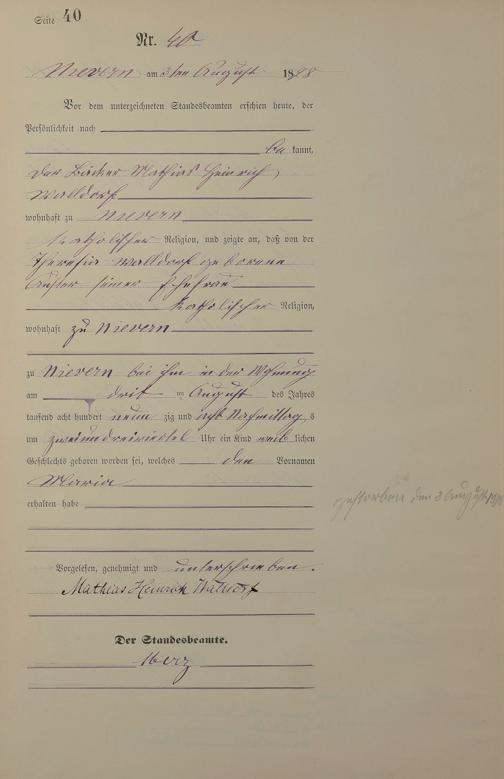 Seite 40
Nr. 40
Nievern am 3ten August 1898
Vor dem unterzeichneten Standesbeamten erschien heute, der
Persönlichkeit nach
be kannt,
der Bäcker Mathias Heinrich
Walldorf
wohnhaft zu Nievern
katholischer Religion, und zeigte an, daß von der
Theresia Walldorf geborene
seiner Ehefrau
katholischer Religion,
wohnhaft zu Nievern
zu Nievern bei ihm in der Wohnung
am drit August des Jahres
tausend acht hundert neun zig und acht Nachmittag s
um zweiunddreiviertel Uhr ein Kind weib lichen
Geschlechts geboren worden sei, welches den Vornamen
Maria
erhalten habe
gestorben den 3 August
Vorgelesen, genehmigt und unterschrieben.
Mathias Heinrich Walldorf
Der Standesbeamte.
Merz